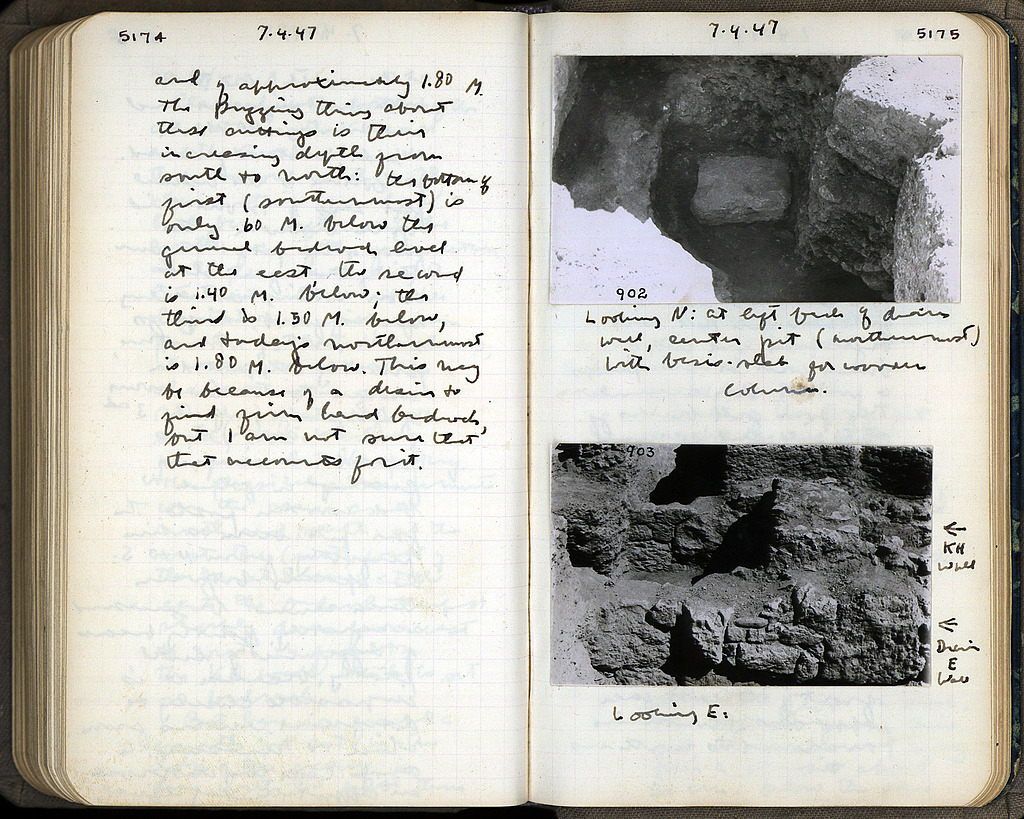 5174
7.4.47
and of approximately 1.80 M.
The puzzling thing about
these cuttings is their
increasing depth from
south to north: the bottom of
first (southernmost) is
only .60 M. below the
general bedrock level
at the east, the second
is 1.40 M. below; the
third is 1.50 M. below,
and today's northernmost
is 1.80 M. below. This may
be because of a desire to
find firm hard bedrock,
but I am not sure that
that accounts for it.
7.4.47
5175
902
Looking N: at left back of drain
wall, center pit (northernmost)
with basis-slab for wooden
column.
903
←
KH
Wall
←
Drain
E
Wall
Looking E: